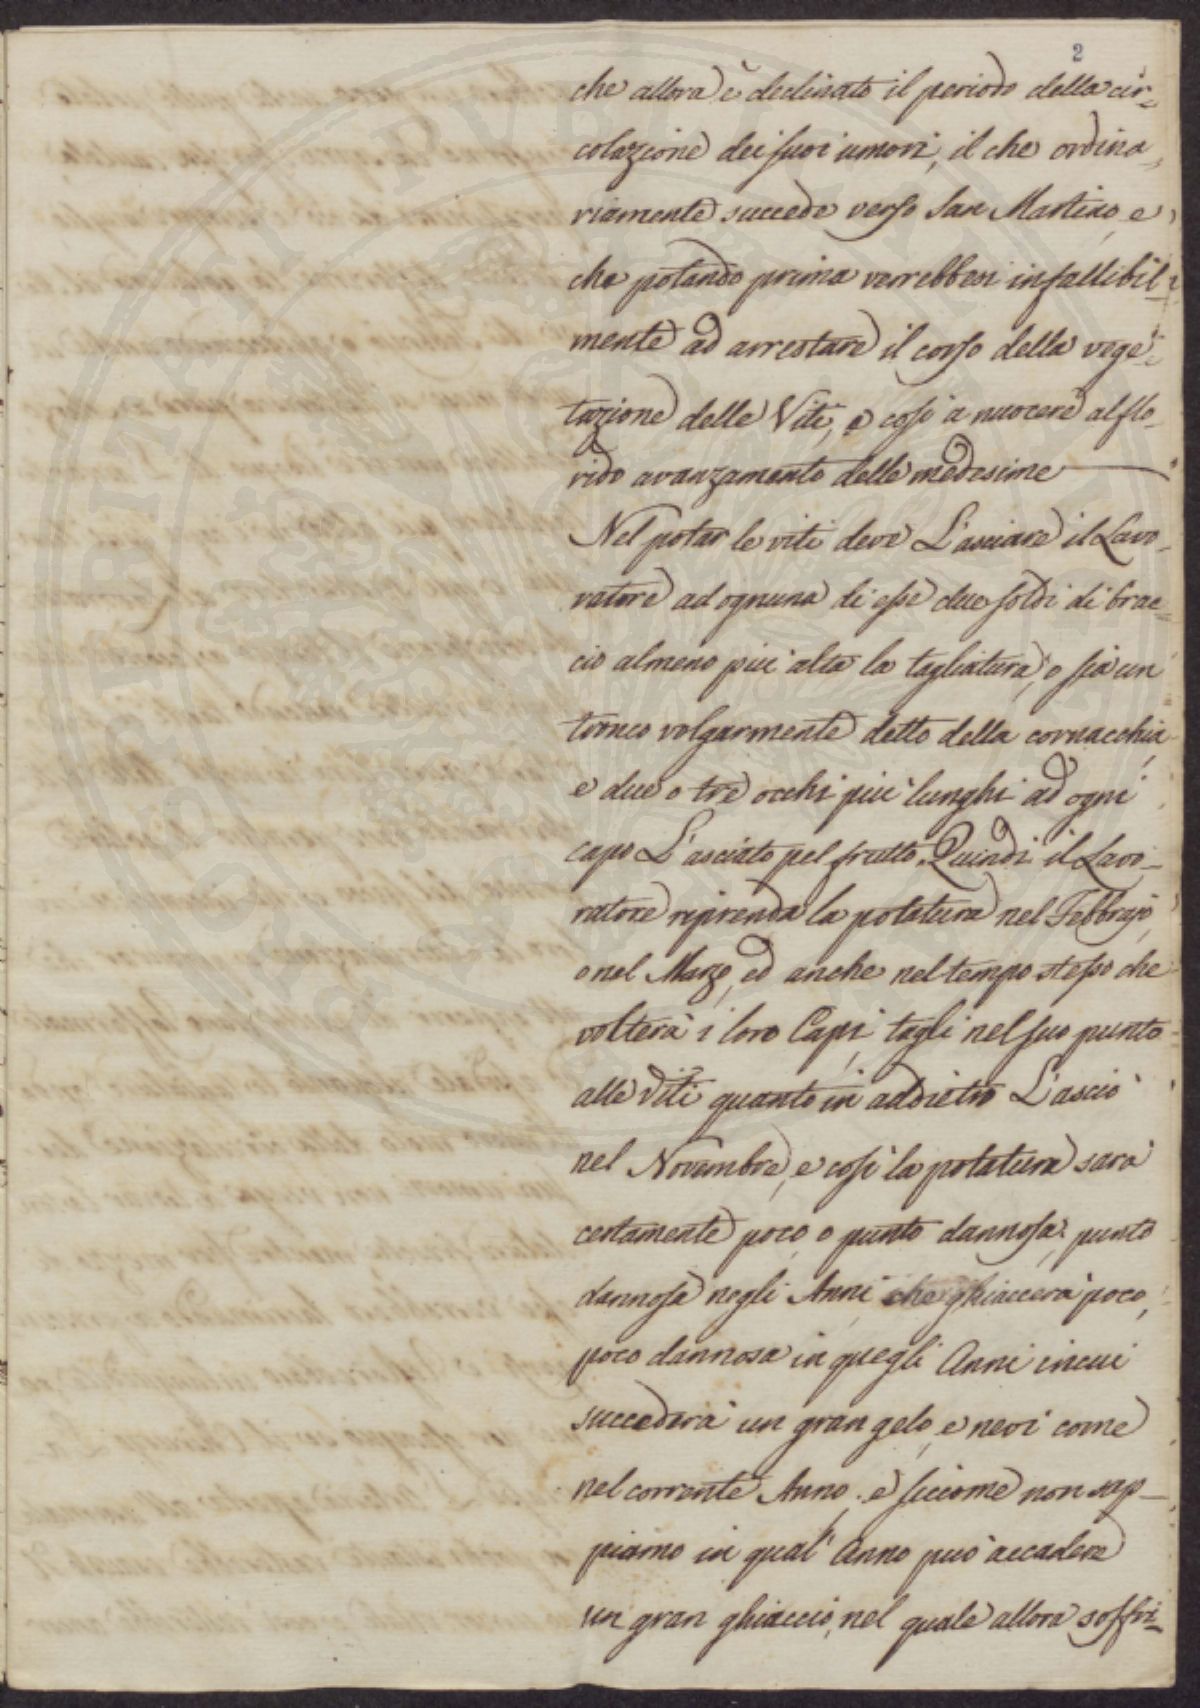 2
che allora è declinato il periodo della cir=
colazione dei suoi umori, il che ordina=
riamente succede verso San Martino, e
che potando prima verrebbesi infallibil=
mente ad arrestare il corso della vege=
tazione delle Viti, e così a nuocere al flo-
rido avanzamento delle medesime
Nel potar le viti deve L'asciare il Lavo-
ratore ad ognuna di esse due soldi di brac=
cio almeno piu' alta la tagliatura, o sia un
tronco volgarmente detto della cornacchia,
e due o tre occhi piu' lunghi ad ogni
capo L'asciato pel frutto. Quindi il Lavo-
ratore riprenda la potatura nel Febbrajo,
o nel Marzo, ed anche nel tempo stesso che
volterà i loro Capi, tagli nel suo punto
alle Viti quanto in addietro L'asciò
nel Novembre, e così la potatura sarà
certamente poco, o punto dannosa: punto
dannosa negli Anni, che ghiaccerà poco,
poco dannosa in quegli Anni in cui
succederà un gran gelo, e nevi come
nel corrente Anno. e siccome non sap-
piamo in qual' Anno può accadere
un gran ghiaccio, nel quale allora soffri=